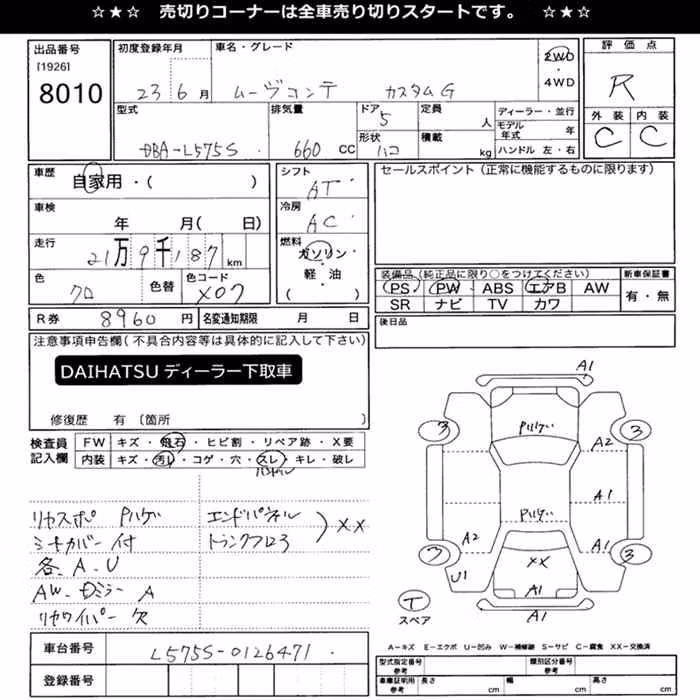 ☆★☆ 売切りコーナーは全車売り切りスタートです。 ☆★☆
出品番号
[1926]
8010
初度登録年月
23 6 月
車名・グレード
ムーヴコンテ カスタムG
2WD
・
4WD
評価点
R
外装 内装
C C
型式
DBA-L575S
排気量
660 CC
ドア
5
形状
ハコ
定員
人
積載
kg
ディーラー・並行
モデル年式 年
ハンドル 左・右
車歴
自家用・( )
車検
年 月( 日)
走行
21万9千187 km
色
クロ
色替
色コード
X07
シフト
AT
冷房
AC
燃料
ガソリン・
軽・油
( )
セールスポイント(正常に機能するものに限ります)
装備品(純正品に限り○をつけてください)
PS PW ABS エアB AW
SR ナビ TV カワ
新車保証書
有・無
R券 8960 円 名変通知期限 月 日
後日品
注意事項申告欄(不具合内容等は具体的に記入して下さい)
DAIHATSU ディーラー下取車
修復歴 有〔箇所 〕
検査員
記入欄
FW キズ・飛石・ヒビ割・リペア跡・X要
内装 キズ・汚レ・コゲ・穴・スレ・キレ・破レ
ハンドル
リヤスポ Pハゲ
シートカバー付
各.A.U
AW-Dミラー A
リヤワイパー欠
エンドパネル
トランクフロア
) XX
A1
Pハゲ
3 3
A2
A1
Pハゲ
A2 A1
3 3
XX
U1
A1
A1
T
スペア
A-キズ E-エクボ U-凹み W-補修跡 S-サビ C-腐食 XX-交換済
車台番号
L575S-0126471
登録番号
型式指定番号
参考
類別区分番号
参考
車庫証明用
参考
長さ cm
幅 cm
高さ cm